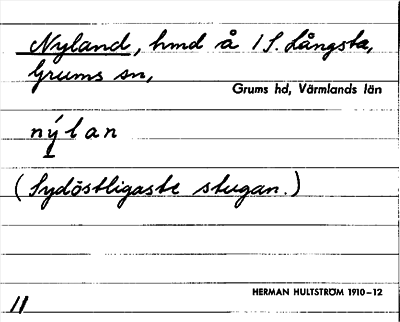 Nyland, hmd å 1 S. Långsta,
Grums sn,
Grums hd, Värmlands län
nýlan
(Sydöstligaste stugan.)
HERMAN HULTSTRÖM 1910–12
11